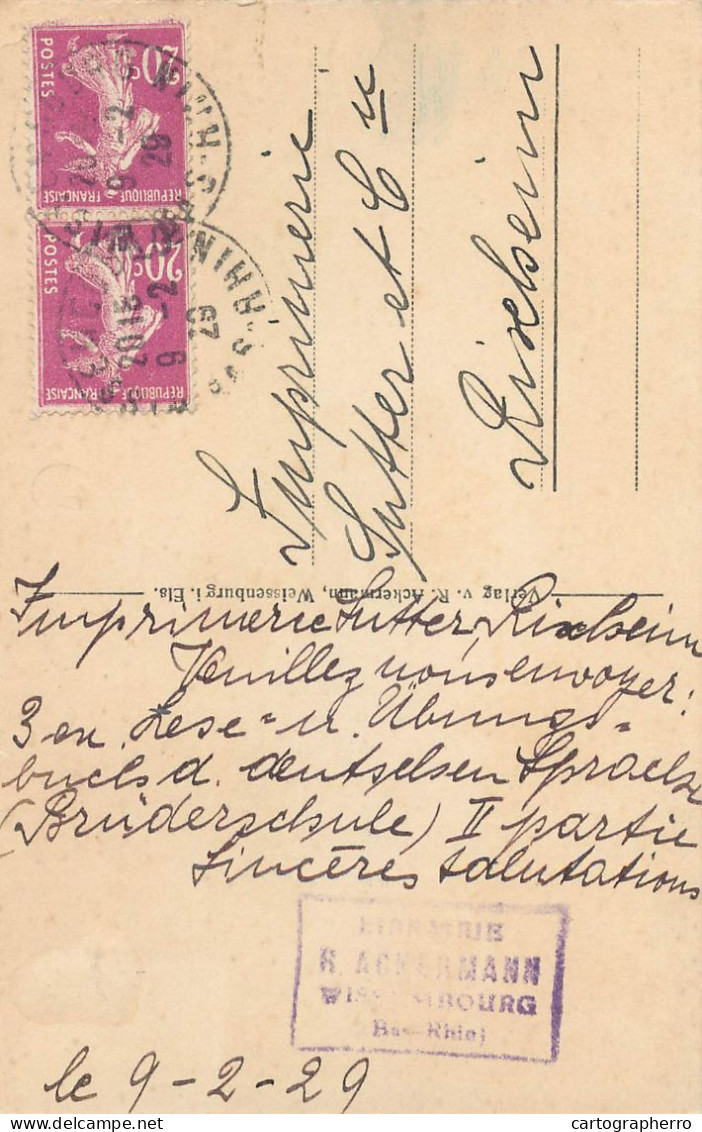 20c
POSTES
REPUBLIQUE FRANÇAISE
20c
POSTES
REPUBLIQUE FRANÇAISE
BAS-RHIN
9-2
29
20 15
9-2
29
Imprimerie
Sutter et C ie
Rixheim
Verlag v. R. Ackermann, Weissenburg i. Els.
Imprimerie Sutter, Rixheim
Veuillez nous envoyer:
3 ex. Lese- u. Übungs-
buchs d. deutschen Sprache
(Brüderschule) II partie
Sincères salutations
LIBRAIRIE
R. ACKERMANN
WISSEMBOURG
Bas-Rhin)
le 9-2-29
cartographerro